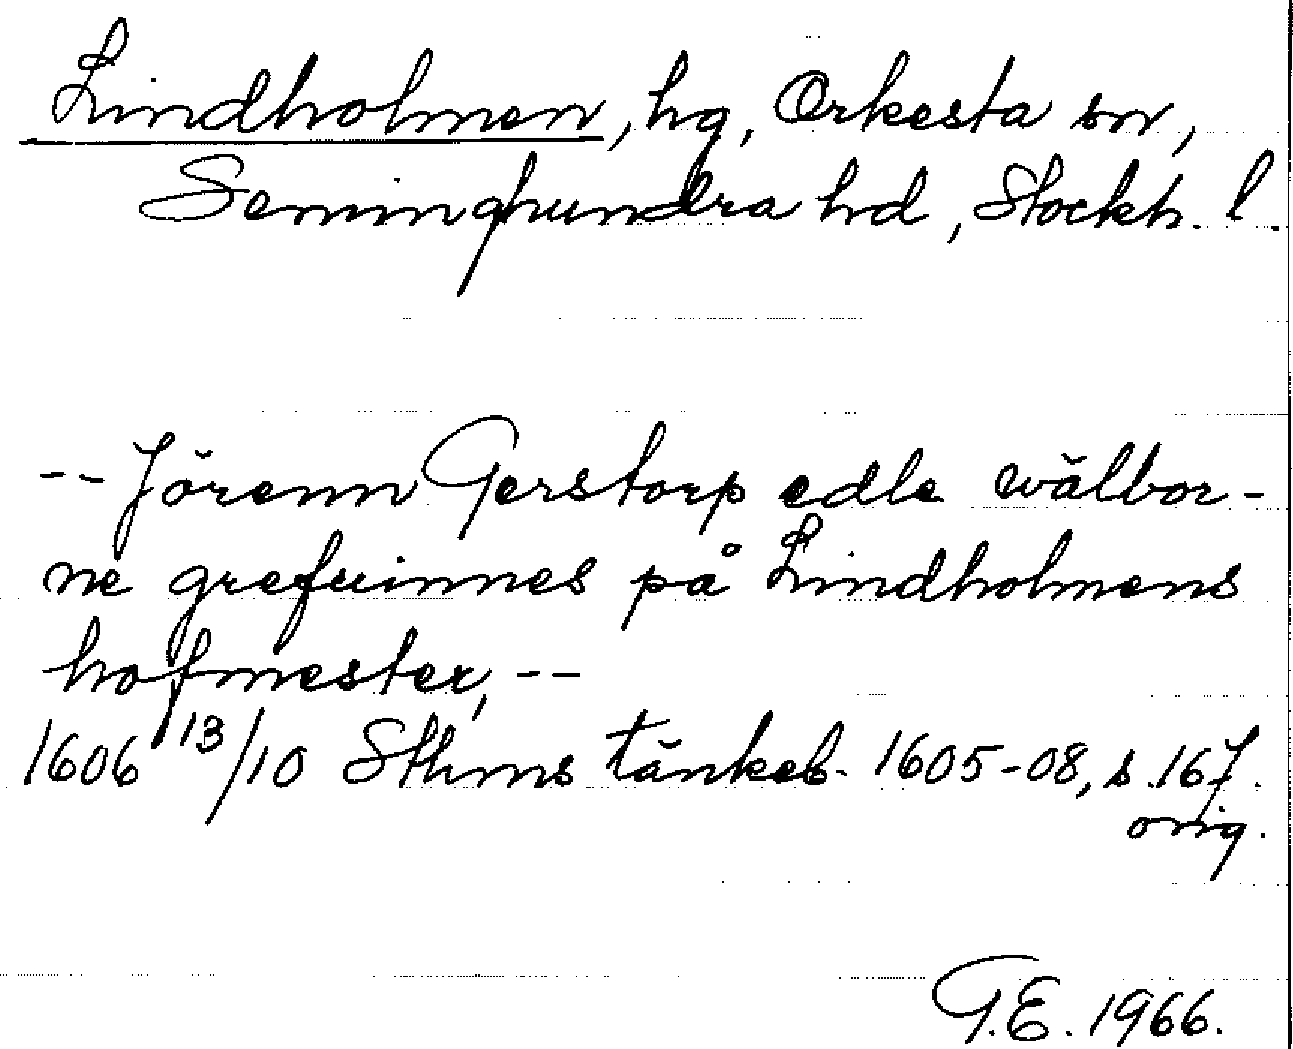 Lindholmen, hg, Orkesta sn,
Seminghundra hd, Stockh. l.
-- Jörenn Gerstorp edle wälbor-
ne grefuinnes på Lindholmens
hofmester, --
1606 13/10 Sthms tänkeb. 1605-08, s. 167.
orig.
G.E. 1966.